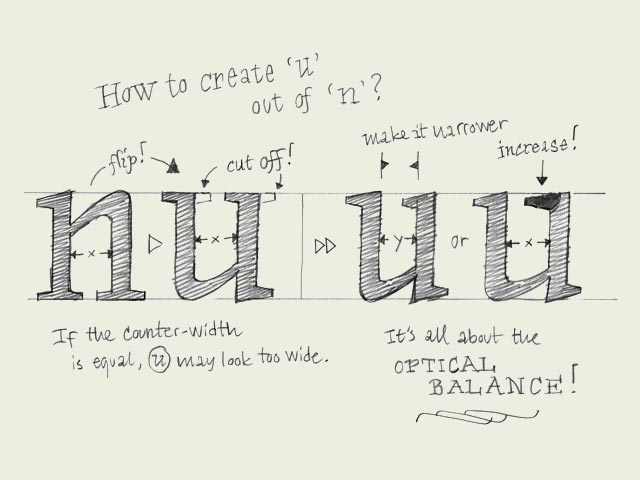 How to create ‘u’
out of ‘n’?
flip!
cut off!
make it narrower
increase!
n u u u
x x y or x
If the counter-width
is equal, u may look too wide.
It's all about the
OPTICAL
BALANCE!